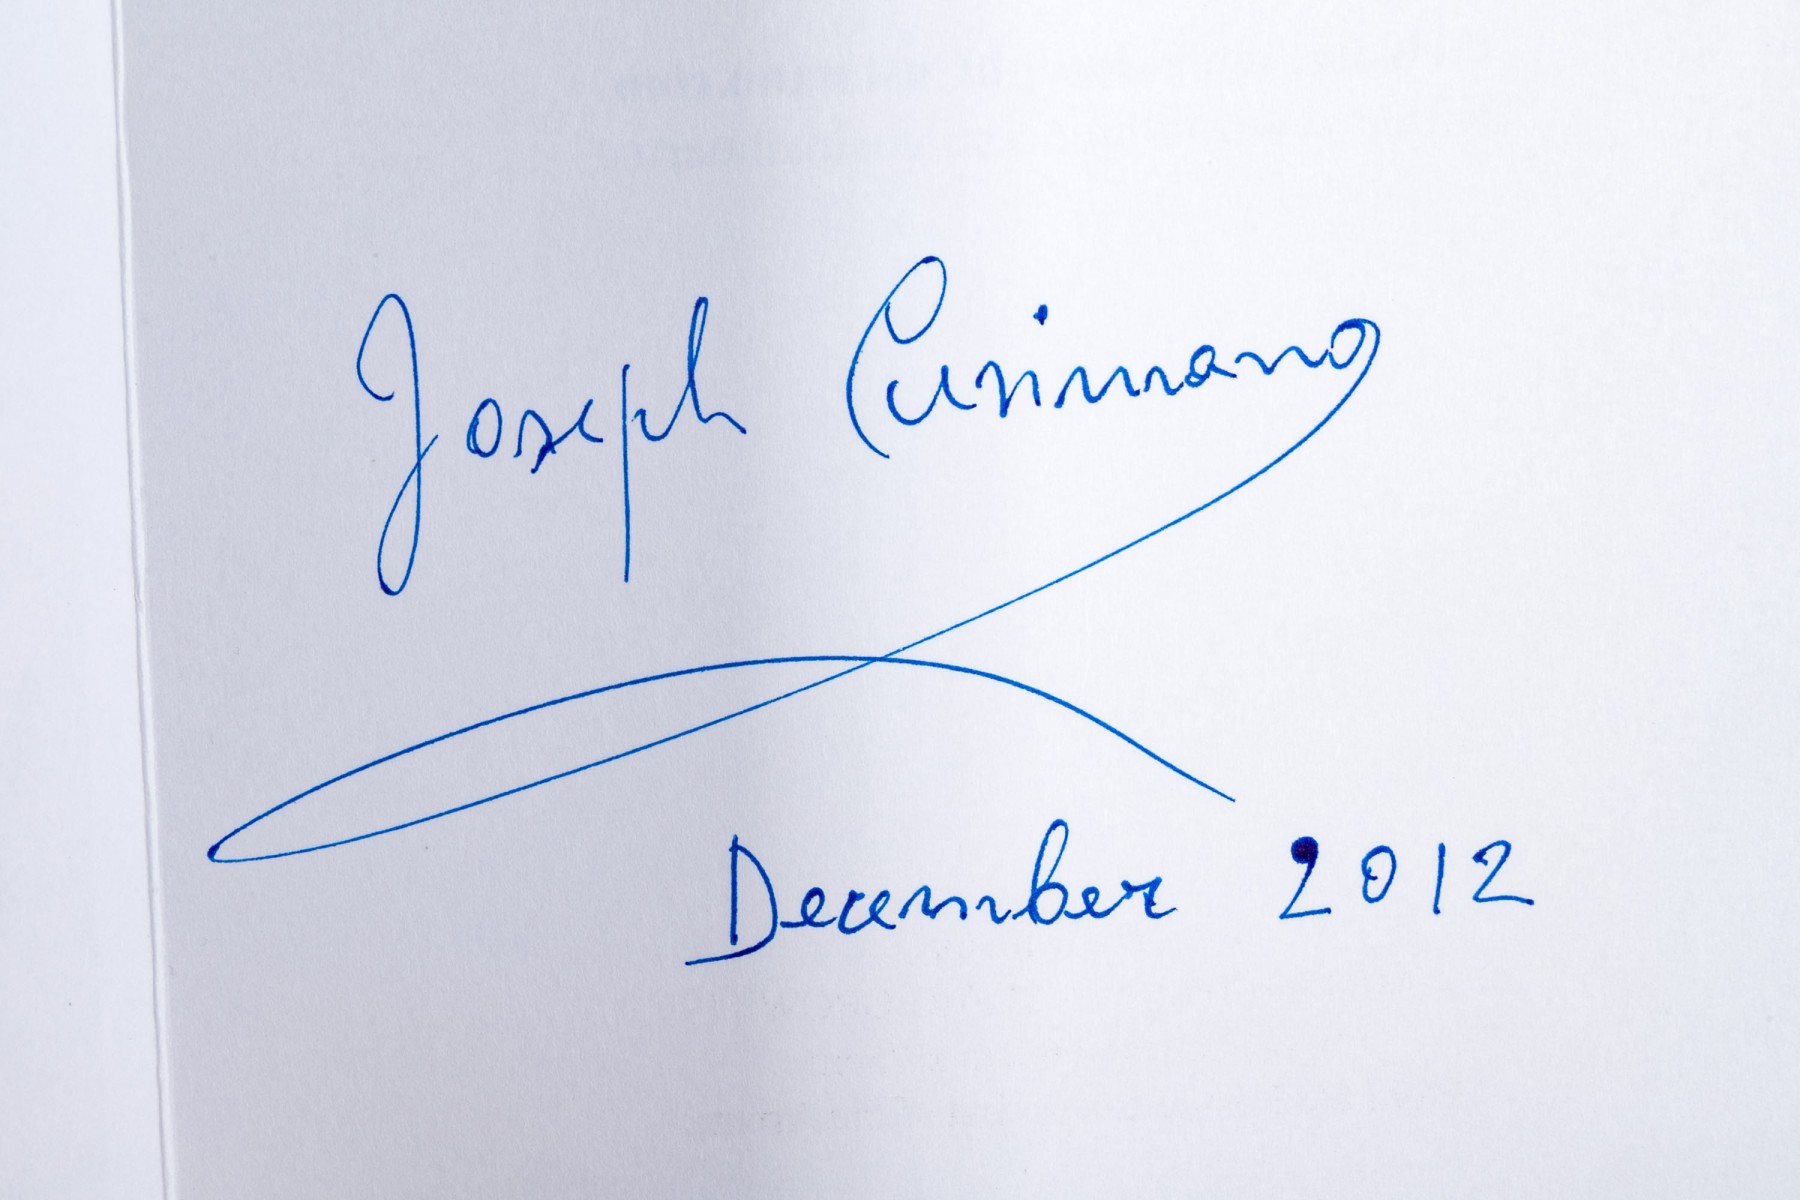 Joseph Cusimano
December 2012